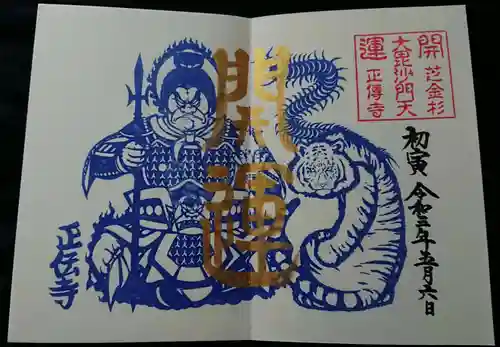 開運
大毘沙門天
芝金杉
正傳寺
初寅
令和三年五月六日
開運
正伝寺